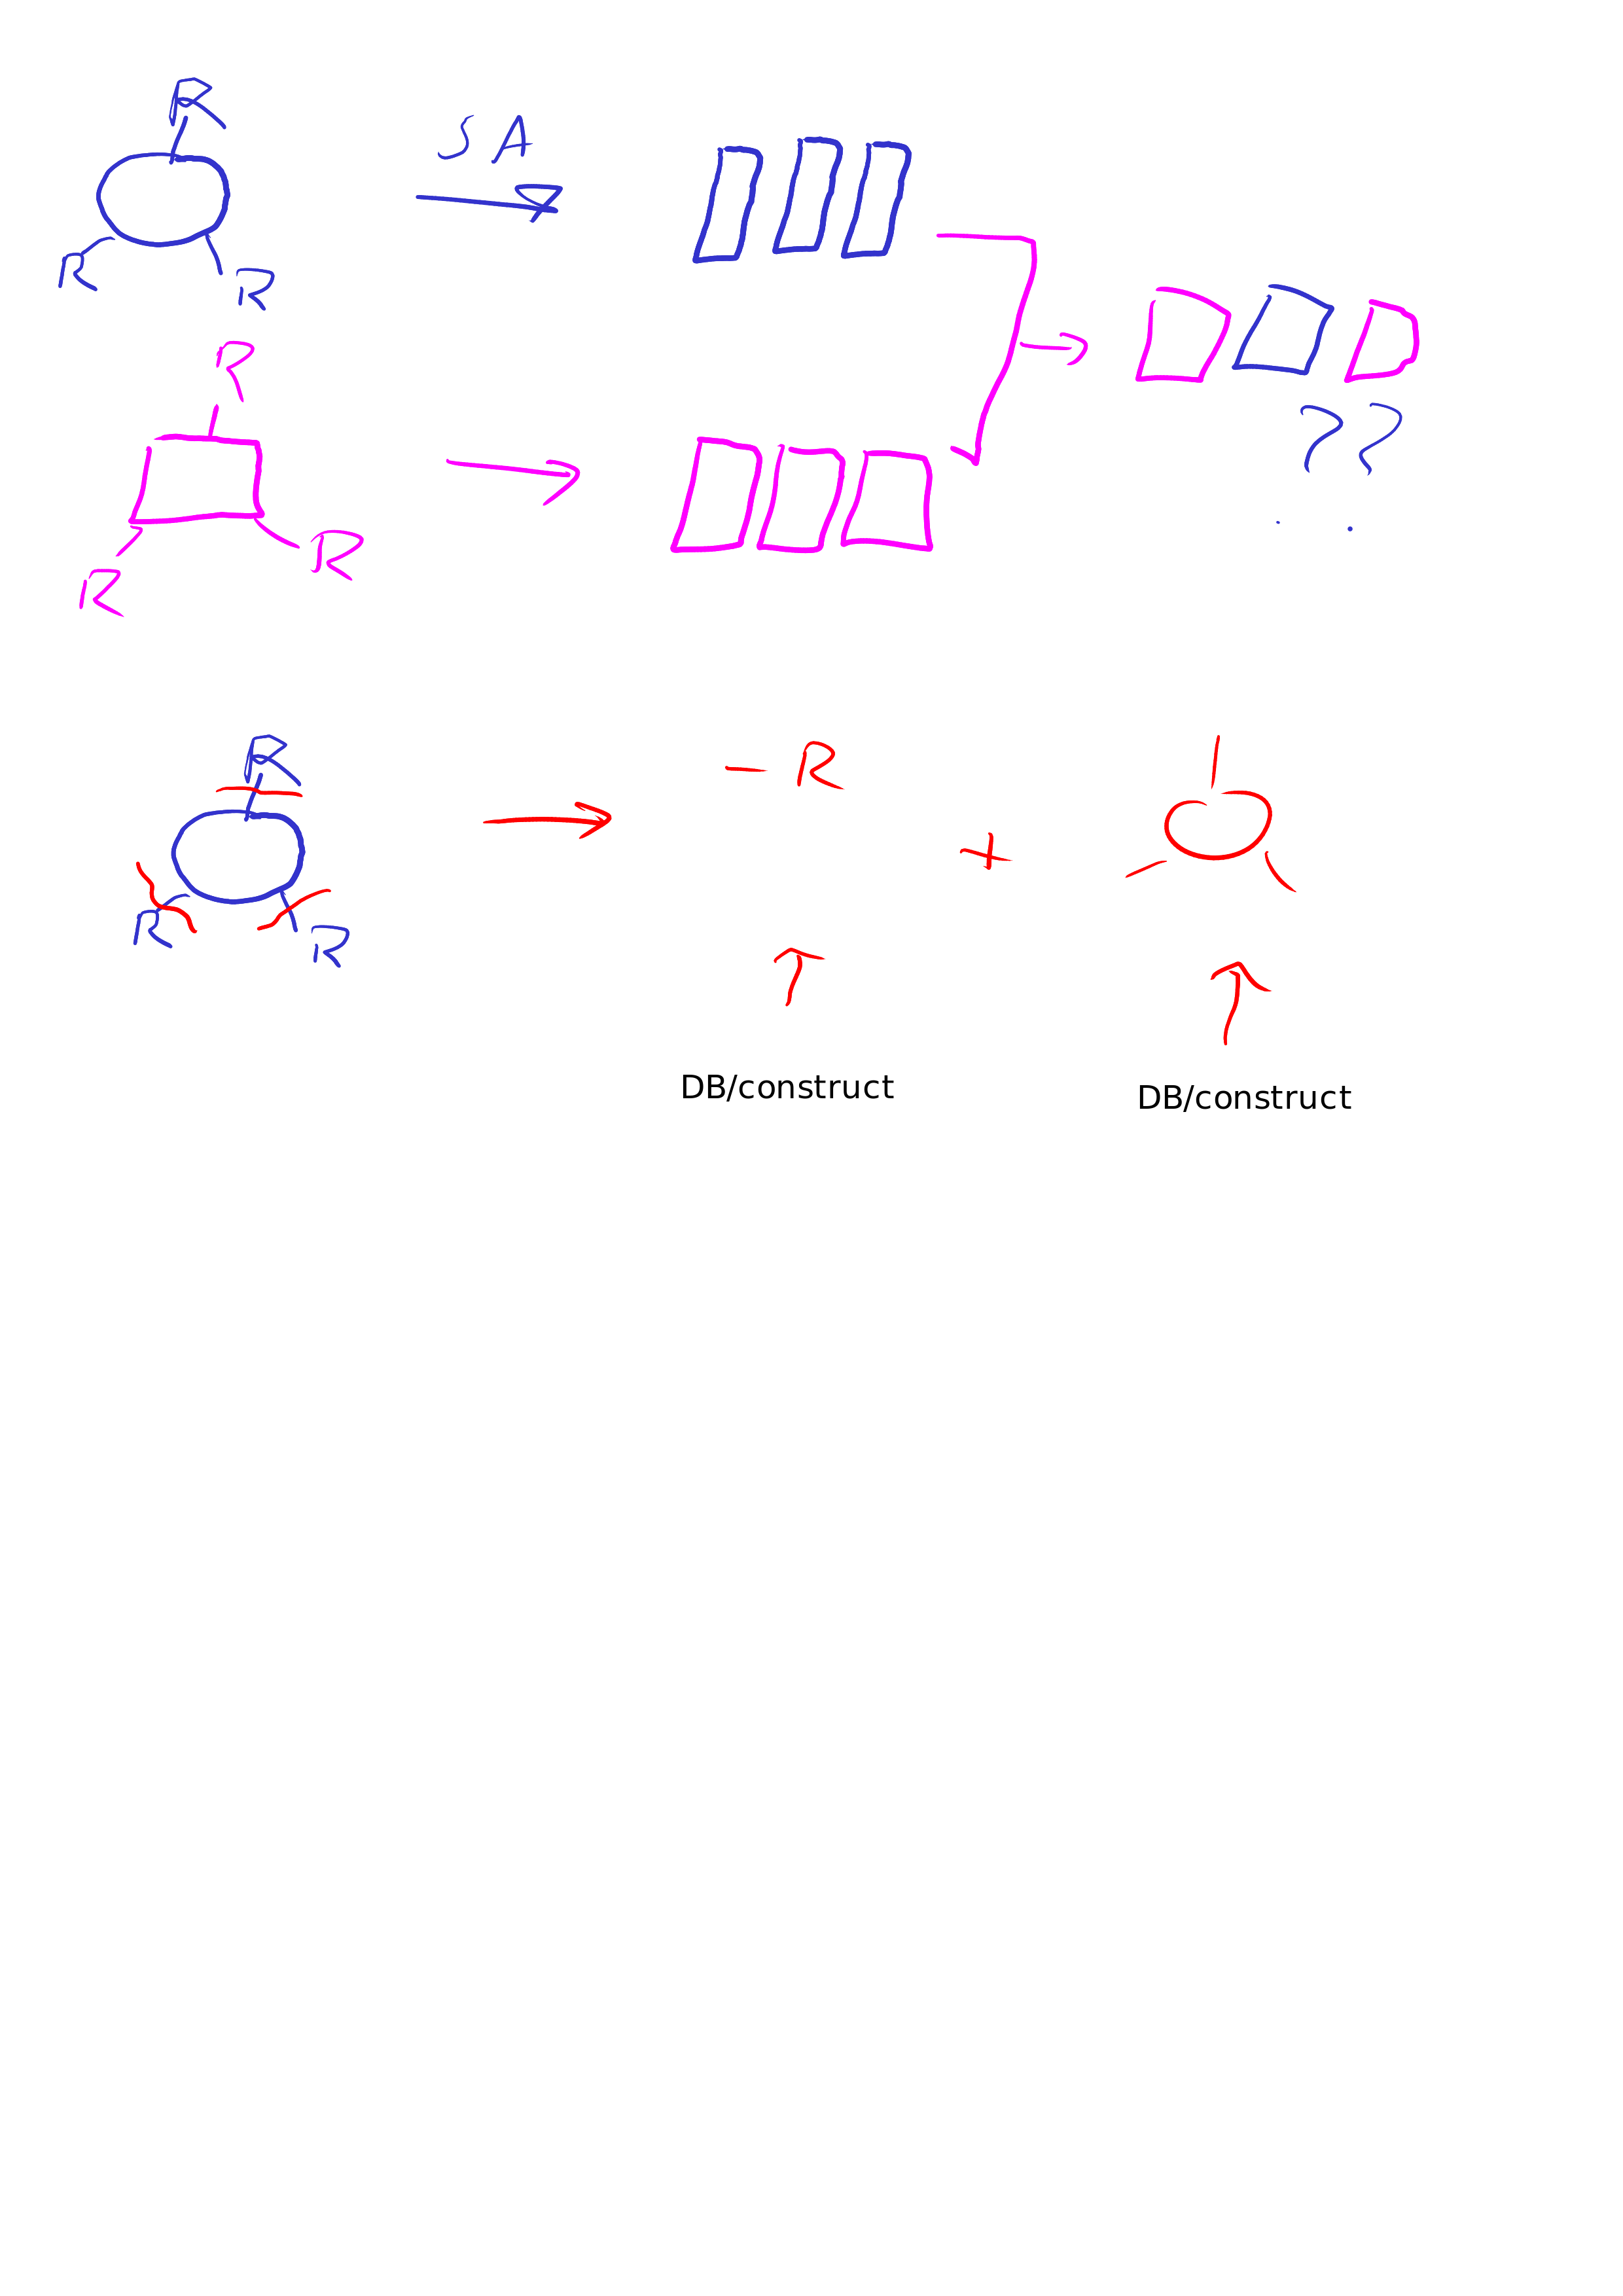 R
SA
R
R
R
??
R
R
R
- R
+
R
R
DB/construct
DB/construct